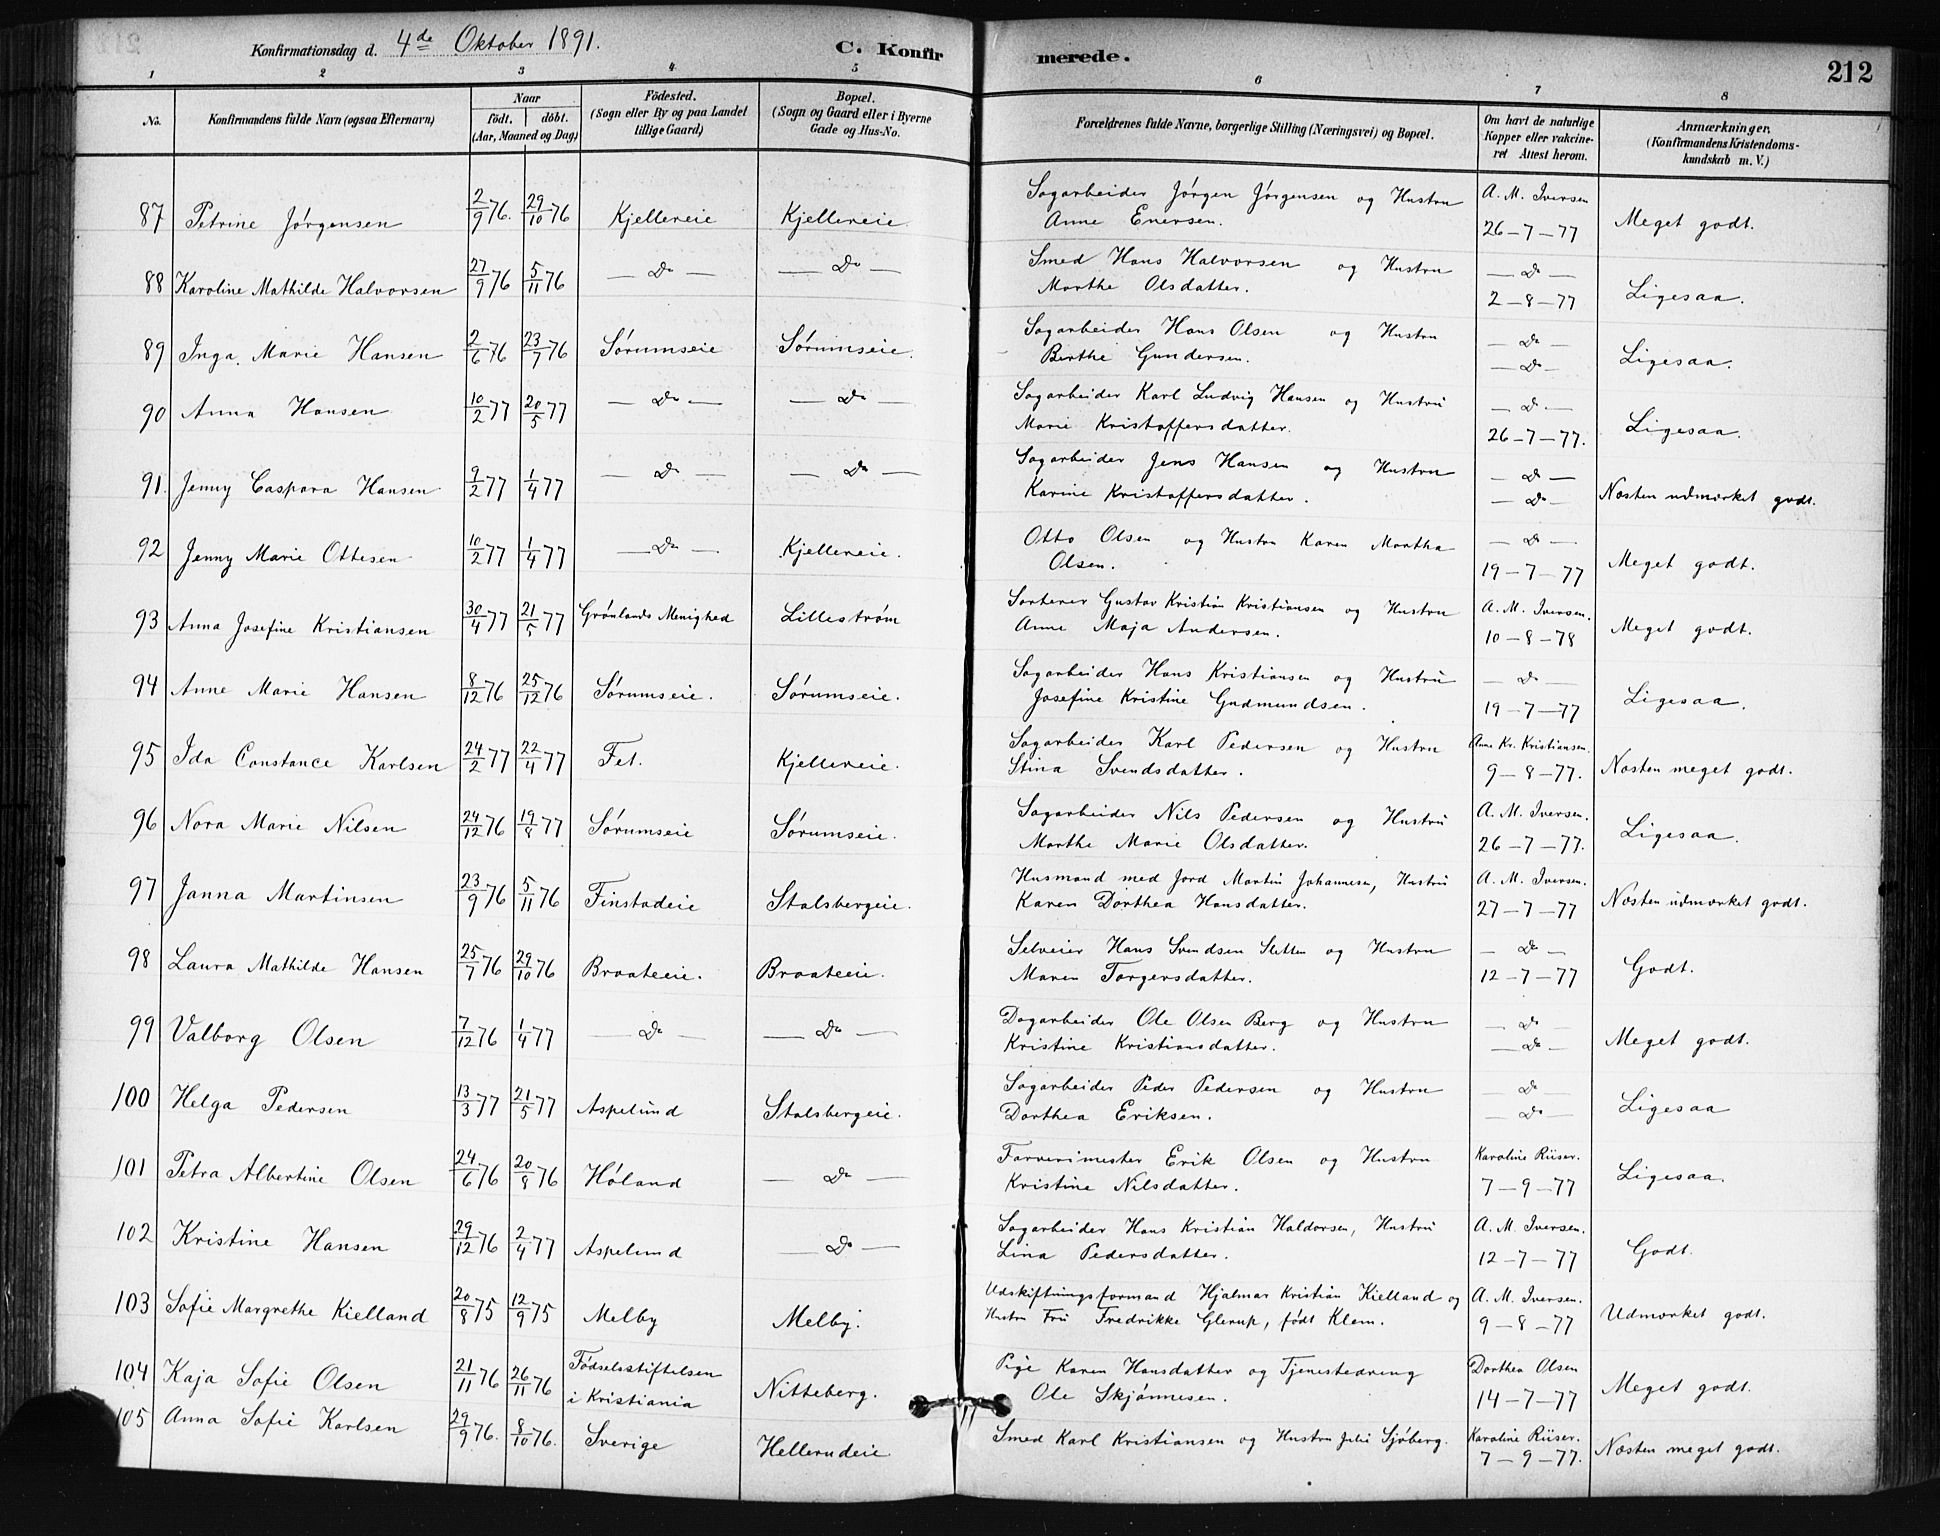 Konfirmationsdag d. 4de Oktober 1891.
C. Konfirmerede.
212
1 2 3 4 5 6 7 8
No.
Konfirmandens fulde Navn (ogsaa Efternavn)
Naar
födt. döbt.
(Aar, Maaned og Dag)
Födested.
(Sogn eller By og paa Landet
tillige Gaard)
Bopæl.
(Sogn og Gaard eller i Byerne
Gade og Hus-No.
Forældrenes fulde Navne, borgerlige Stilling (Næringsvei) og Bopæl.
Om havt de naturlige
Kopper eller vakcine-
ret Attest herom.
Anmærkninger.
(Konfirmandens Kristendoms-
kundskab m. V.)
87 Petrine Jörgensen 2/9 76. 29/10 76 Kjellereie Kjellereie. Sagarbeider Jörgen Jörgensen og Hustru A. M. Iversen
Anne Enersen. 26-7-77 Meget godt.
88 Karoline Mathilde Halvorsen 27/9 76 5/11 76 — Do — — Do — Smed Hans Halvorsen og Hustru — Do —
Marthe Olsdatter. 2-8-77 Ligesaa.
89 Inga Marie Hansen 2/6 76 23/7 76 Sörumseie Sörumseie. Sagarbeider Hans Olsen og Hustru — Do —
Berthe Gundersen. — Do — Ligesaa.
90 Anna Hansen 10/2 77 20/5 77 — Do — — Do — Sagarbeider Karl Ludvig Hansen og Hustru — Do —
Marie Kristoffersdatter. 26-7-77. Ligesaa.
91. Jenny Caspara Hansen 9/2 77 1/4 77 — Do — — Do — Sagarbeider Jens Hansen og Hustru — Do —
Karine Kristoffersdatter. — Do — Næsten udmærket godt.
92 Jenny Marie Ottesen 10/2 77 1/4 77 — Do — Kjellereie. Otto Olsen og Hustru Karen Martha — Do —
Olsen. 19-7-77 Meget godt.
93 Anna Josefine Kristiansen 30/4 77 21/5 77 Grönlands Menighed Lilleström Sorterer Gustav Kristian Kristiansen og Hustru A. M. Iversen.
Anne Maja Andersen. 10-8-78 Meget godt.
94 Anne Marie Hansen 8/12 76 25/12 76 Sörumseie. Sörumseie. Sagarbeider Hans Kristiansen og Hustru — Do —
Josefine Kristine Gudmundsen. 19-7-77 Ligesaa.
95 Ida Constance Karlsen 24/2 77 22/4 77 Fet. Kjellereie. Sagarbeider Karl Pedersen og Hustru Anne Kr. Kristiansen.
Stina Svendsdatter. 9-8-77. Næsten meget godt.
96 Nora Marie Nilsen 24/12 76 19/8 77 Sörumseie Sörumseie. Sagarbeider Nils Pedersen og Hustru A. M. Iversen.
Marthe Marie Olsdatter. 26-7-77. Ligesaa.
97 Janna Martinsen 23/9 76 5/11 76 Finstadeie Stalsbergeie. Husmand med Jord Martin Johannesen, Hustru A. M. Iversen.
Karen Dorthea Hansdatter. 27-7-77 Næsten udmærket godt.
98 Laura Mathilde Hansen 25/7 76 29/10 76 Braateeie. Braateeie. Selveier Hans Svendsen Sletten og Hustru — Do —
Maren Torgersdatter. 12-7-77 Godt.
99 Valborg Olsen 7/12 76 1/4 77 — Do — — Do — Dagarbeider Ole Olsen Berg og Hustru — Do —
Kristine Kristiansdatter. — Do — Meget godt.
100 Helga Pedersen 13/3 77 21/5 77 Aspelund Stalsbergeie. Sagarbeider Peder Pedersen og Hustru — Do —
Dorthea Eriksen. — Do — Ligesaa
101 Petra Albertine Olsen 24/6 76 20/8 76 Höland — Do — Farverimester Erik Olsen og Hustru Karoline Riiser.
Kristine Nilsdatter. 7-9-77 Ligesaa.
102 Kristine Hansen 29/12 76 2/4 77 Aspelund — Do — Sagarbeider Hans Kristian Haldorsen, Hustru A. M. Iversen.
Lina Pedersdatter. 12-7-77 Godt.
103 Sofie Margrethe Kielland 20/8 75 12/9 75 Melby Melby. Udskiftningsformand Hjalmar Kristian Kielland og A. M. Iversen.
Hustru Fru Fredrikke Glerup, födt Klem. 9-8-77 Udmærket godt.
104 Kaja Sofie Olsen 21/11 76 26/11 76 Födselsstiftelsen
i Kristiania Nitteberg. Pige Karen Hansdatter og Tjenestedreng Dorthea Olsen
Ole Skjönnesen. 14-7-77 Meget godt.
105 Anna Sofie Karlsen 29/9 76. 8/10 76. Sverige Hellerudeie Smed Karl Kristiansen og Hustru Julie Sjöberg. Karoline Riiser.
7-9-77. Næsten meget godt.